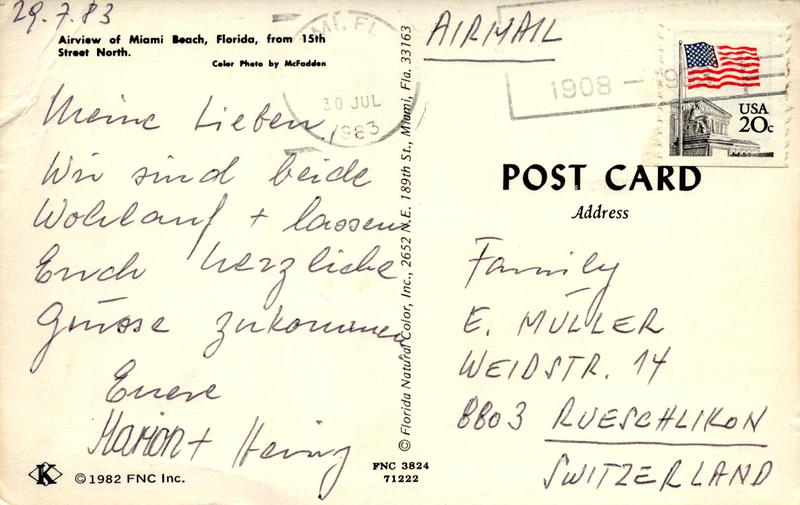 29.7.83
Airview of Miami Beach, Florida, from 15th
Street North.
Color Photo by McFadden
Meine Lieben,
Wir sind beide
Wohlauf + lassen
Euch herzliche
Grüsse zukommen
Euere
Marion + Heinz
K ©1982 FNC Inc.
MI, FL
30 JUL
1983
© Florida Natural Color, Inc., 2652 N.E. 189th St., Miami, Fla. 33163
FNC 3824
71222
AIRMAIL
1908 –
USA
20c
POST CARD
Address
Family
E. MÜLLER
WEIDSTR. 14
8803 RUESCHLIKON
SWITZERLAND